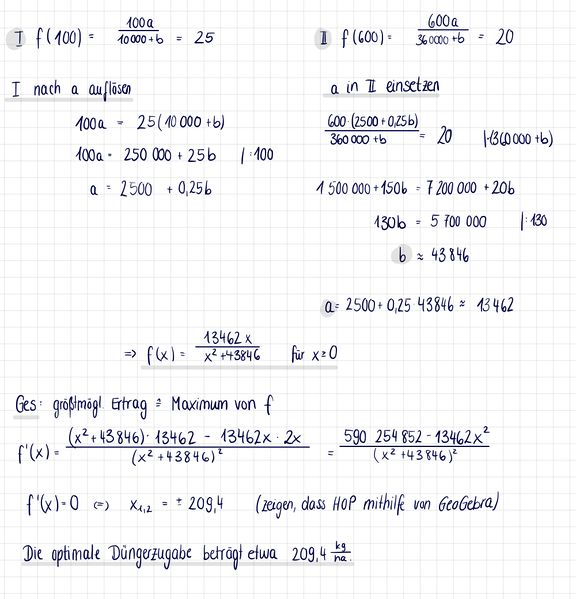 I f(100) = 100a / 10000+b = 25
II f(600) = 600a / 360000+b = 20
I nach a auflösen
100a = 25(10 000 + b)
100a = 250 000 + 25b |:100
a = 2500 + 0,25b
a in II einsetzen
600·(2500+0,25b) / 360 000 + b = 20 |·(360 000 + b)
1 500 000 + 150b = 7 200 000 + 20b
130b = 5 700 000 |:130
b ≈ 43 846
a = 2500 + 0,25 43846 ≈ 13 462
=> f(x) = 13462 x / x² + 43846 für x ≥ 0
Ges: größtmögl. Ertrag ≙ Maximum von f
f'(x) = (x² + 43 846) · 13462 - 13462x · 2x / (x² + 43846)² = 590 254 852 - 13462x² / (x² + 43846)²
f'(x) = 0 <=> x1,2 = ± 209,4 (zeigen, dass HOP mithilfe von GeoGebra)
Die optimale Düngerzugabe beträgt etwa 209,4 kg/ha.